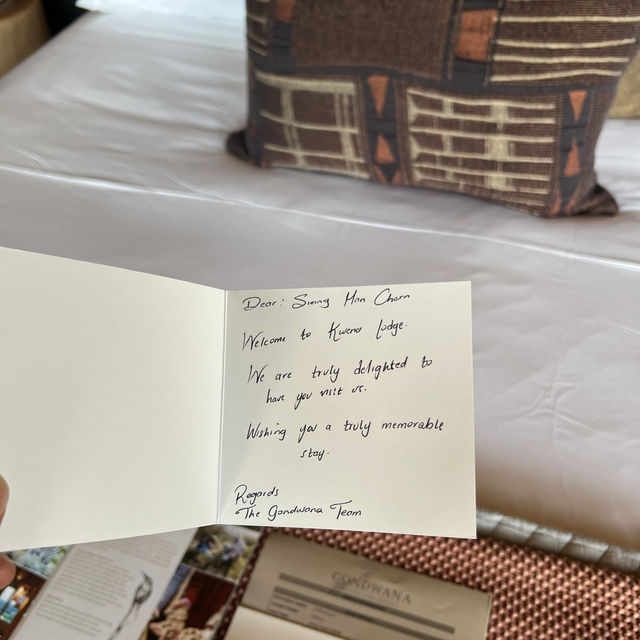 Dear: Siang Han Chern
Welcome to Kwena Lodge.
We are truly delighted to
have you visit us.
Wishing you a truly memorable
stay.
Regards
The Gondwana Team
GONDWANA